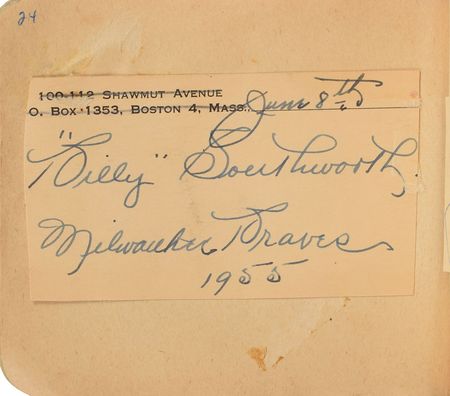 24
100-112 Shawmut Avenue
O. Box 1353, Boston 4, Mass.
June 8th
"Billy" Southworth
Milwaukee Braves
1955